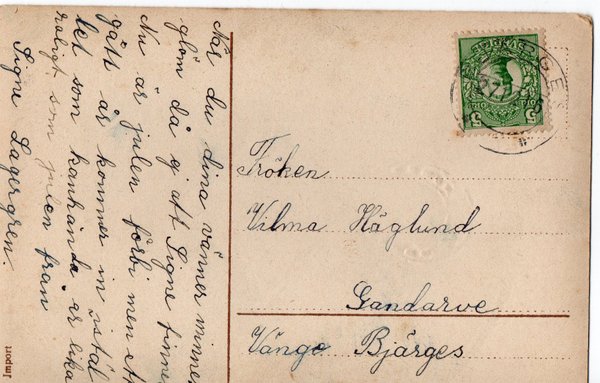 När du dina vänner minnes
glöm då ej att Signe finnes
Nu är julen förbi men ett
gått år kommer in istäl
let som kanhända är lika
roligt som julen från
Signe Lagergren.
Fröken
Vilma Häglund
Gandarve
Vänge Bjärges
Import
SVERIGE
5